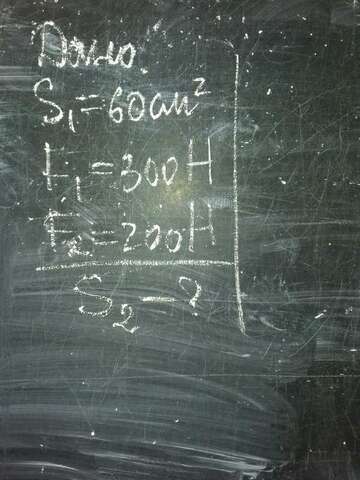 Дано:
S₁=60см²
F₁=300Н
F₂=200Н
S₂-?